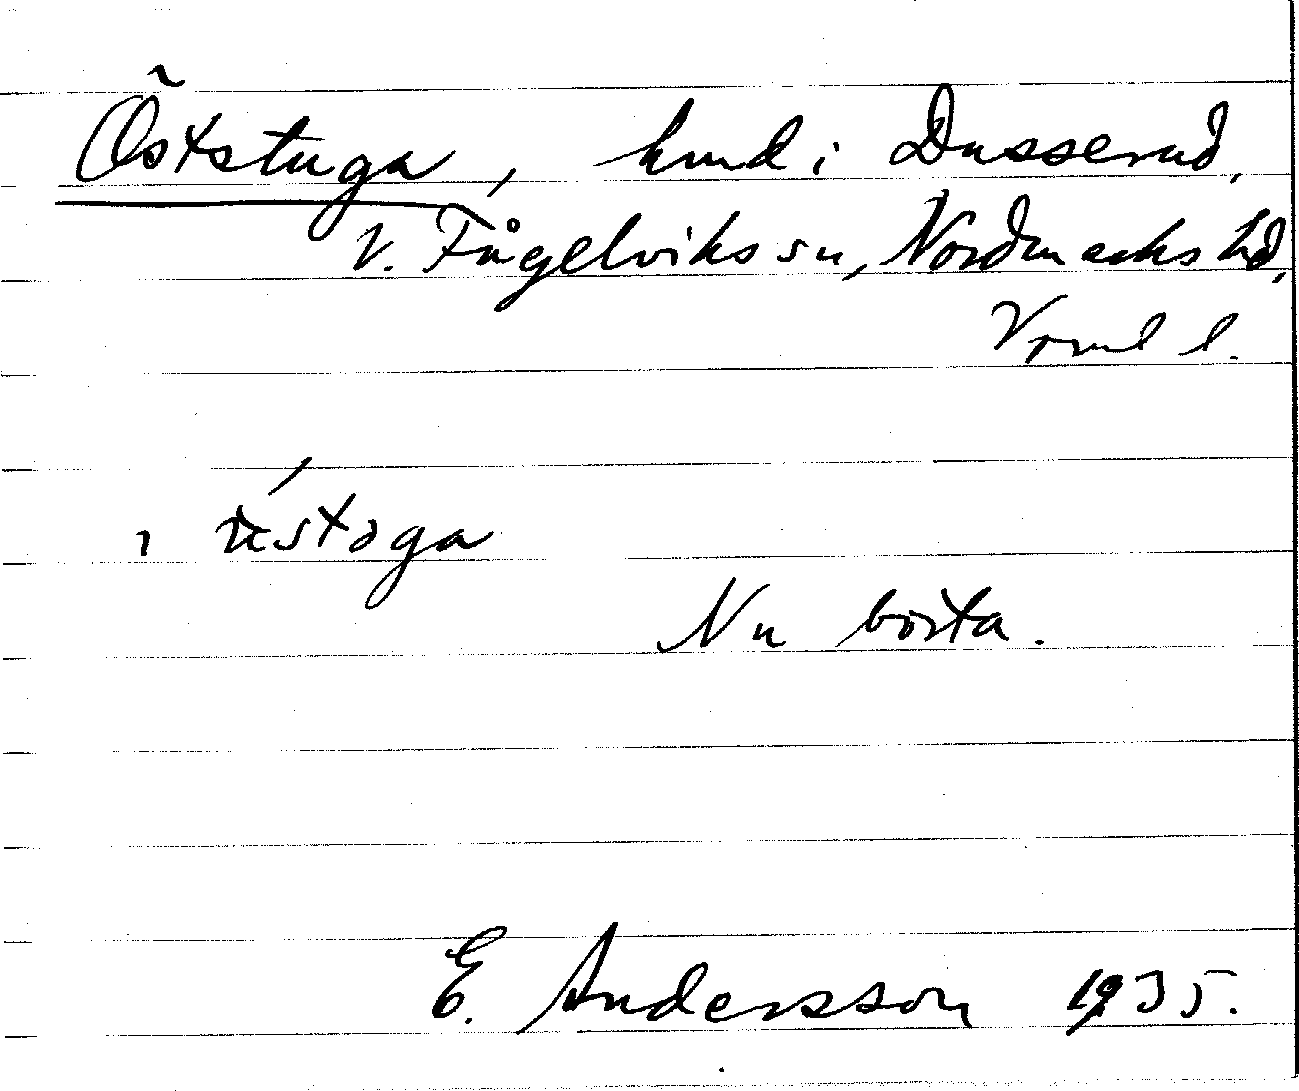 Öststuga, hmd i Dusserud,
V. Fågelviks sn, Nordmarks hd,
Vrml l.
i
Nu borta.
E. Andersson 1935.